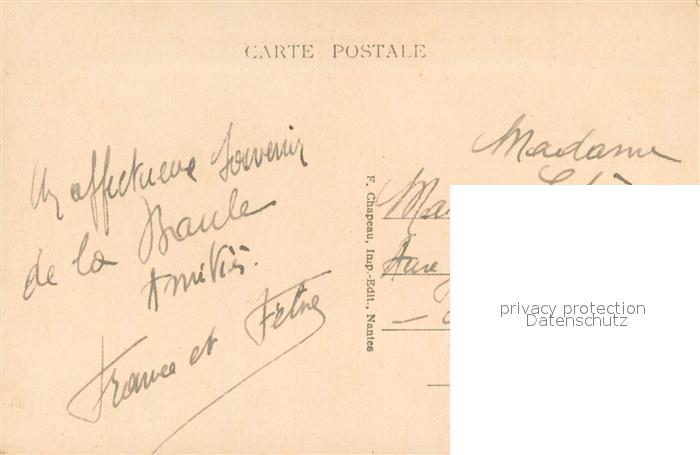 CARTE POSTALE
Un affectueux Souvenir
de la Baule
Amitiés.
France et
F. Chapeau, Imp.-Edit., Nantes
Madame
privacy protection
Datenschutz